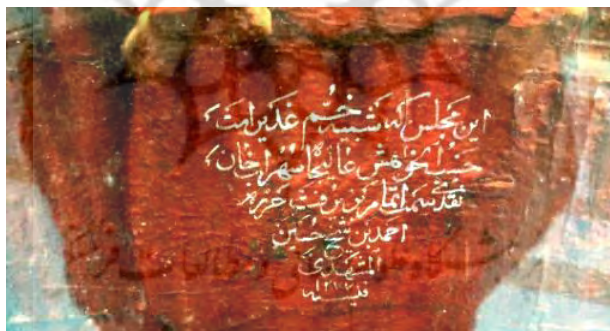 این مجلس که شبیه خم غدیر است
حسب الخواهش عالیجاه سهراب خان
نقدی سمت اتمام پذیرفت حرره
احمد بن شیخ حسین
المشهدی
سنه